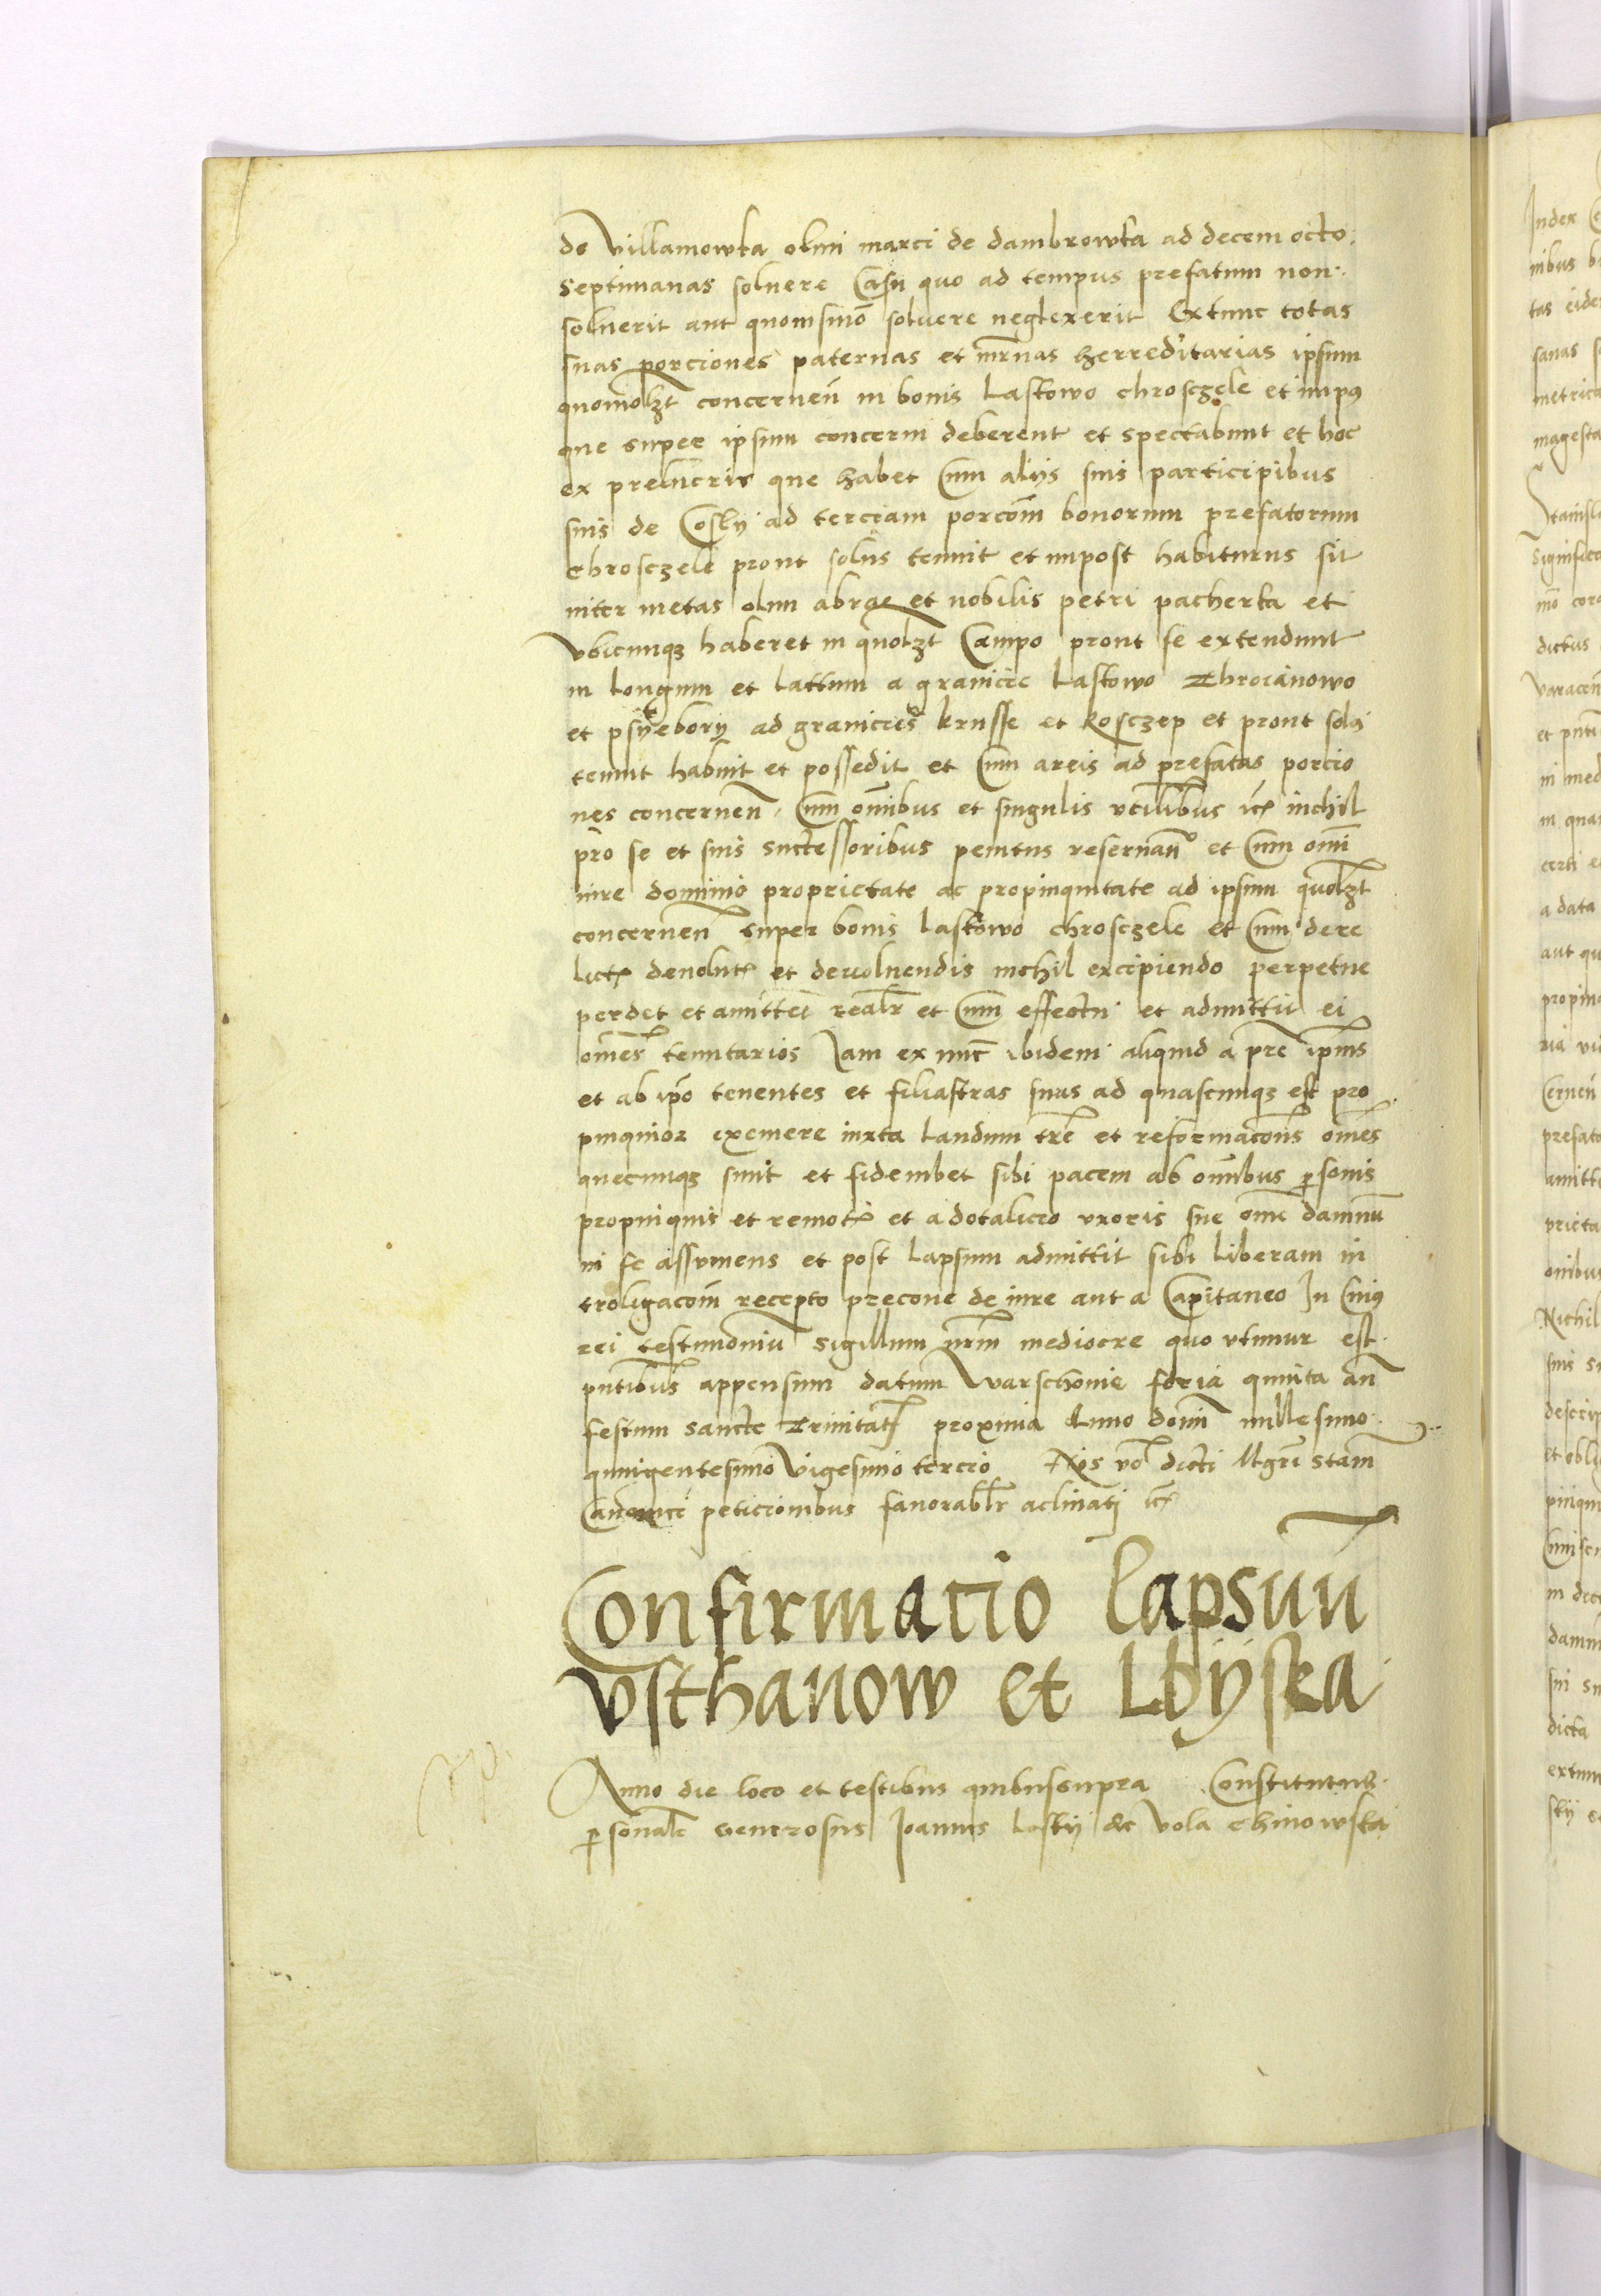 de Villamowka olim marci de dambrowka ad decem octo
septimanas soluere Casu quo ad tempus prefatum non
soluerit aut quouismō soluere neglexerit Extunc totas
suas porciones paternas et mr̄nas herreditarias ipsum
quomolʒt concerneñ in bonis Laskowo chrosczele et impꝰ
que super ipsum concerni deberent et spectabunt et hoc
ex que habet Cum alijs suis participibus
suis de Cosly ad terciam porcōm bonorum prefatorum
chrosczele prout solus tenuit et inpost habiturus sit
inter metas olim abrae et nobilis petri pacherka et
vbicunqʒ haberet in quolʒt Campo prout se extendunt
in longum et lattum a granicie Laskowo Zbroianowo
et ad granicies krusse et kosczep et prout solꝰ
tenuit habuit et possedit et Cum areis ad prefatas porcio
nes concerneñ Cum om̄ibus et singulis vtilibus ic̄ inchil
pro se et suis successoribus penitus reseruañ° et Cum om̄i
iure dominio proprietate ac propinquitate ad ipsum quolʒt
concerneñ super bonis laskowo chrosczele et Cum dere
lict̄ deuolut̄ et deuoluendis inchil excipiendo perpetue
perdet et amittet realr̄ et Cum effectu et admittit ei
om̄es tenutarios Iam ex nūc ibidem aliquid a pr̄e ipius
et ab ip̄o tenentes et filiastras suas ad quascunqʒ est pro
pinquior exemere iuxta laudum tr̄e et reformacōis om̄es
quecunqʒ sunt et fideiubet sibi pacem ab om̄ibus ꝑsonis
propinquis et remot̄ et a dotalicio vxoris sue om̄e damnū
in se assumens et post lapsum admittit sibi liberam in
troligacōm recepto precone de iure aut a Capitaneo In Cuiꝰ
rei testimoniū sigillum nr̄m mediocre quo vtimur est
pn̄tibus appensum datum Warschouie feria quinta añ
festum sancte Trinitat̄ proxima Anno domī millesimo
quingentesimo Vigesimo tercio Nos vō dicti Mgr̄i stam̄
Canonici peticionibus fauorablr̄ aclinati ic̄
Confirmacio lapsuū
vsthanow et Lbijska
Anno die loco et testibus quibus supra Constitutus
ꝑsonalr̄ Generosus Joannes Laskij de Vola chinowska